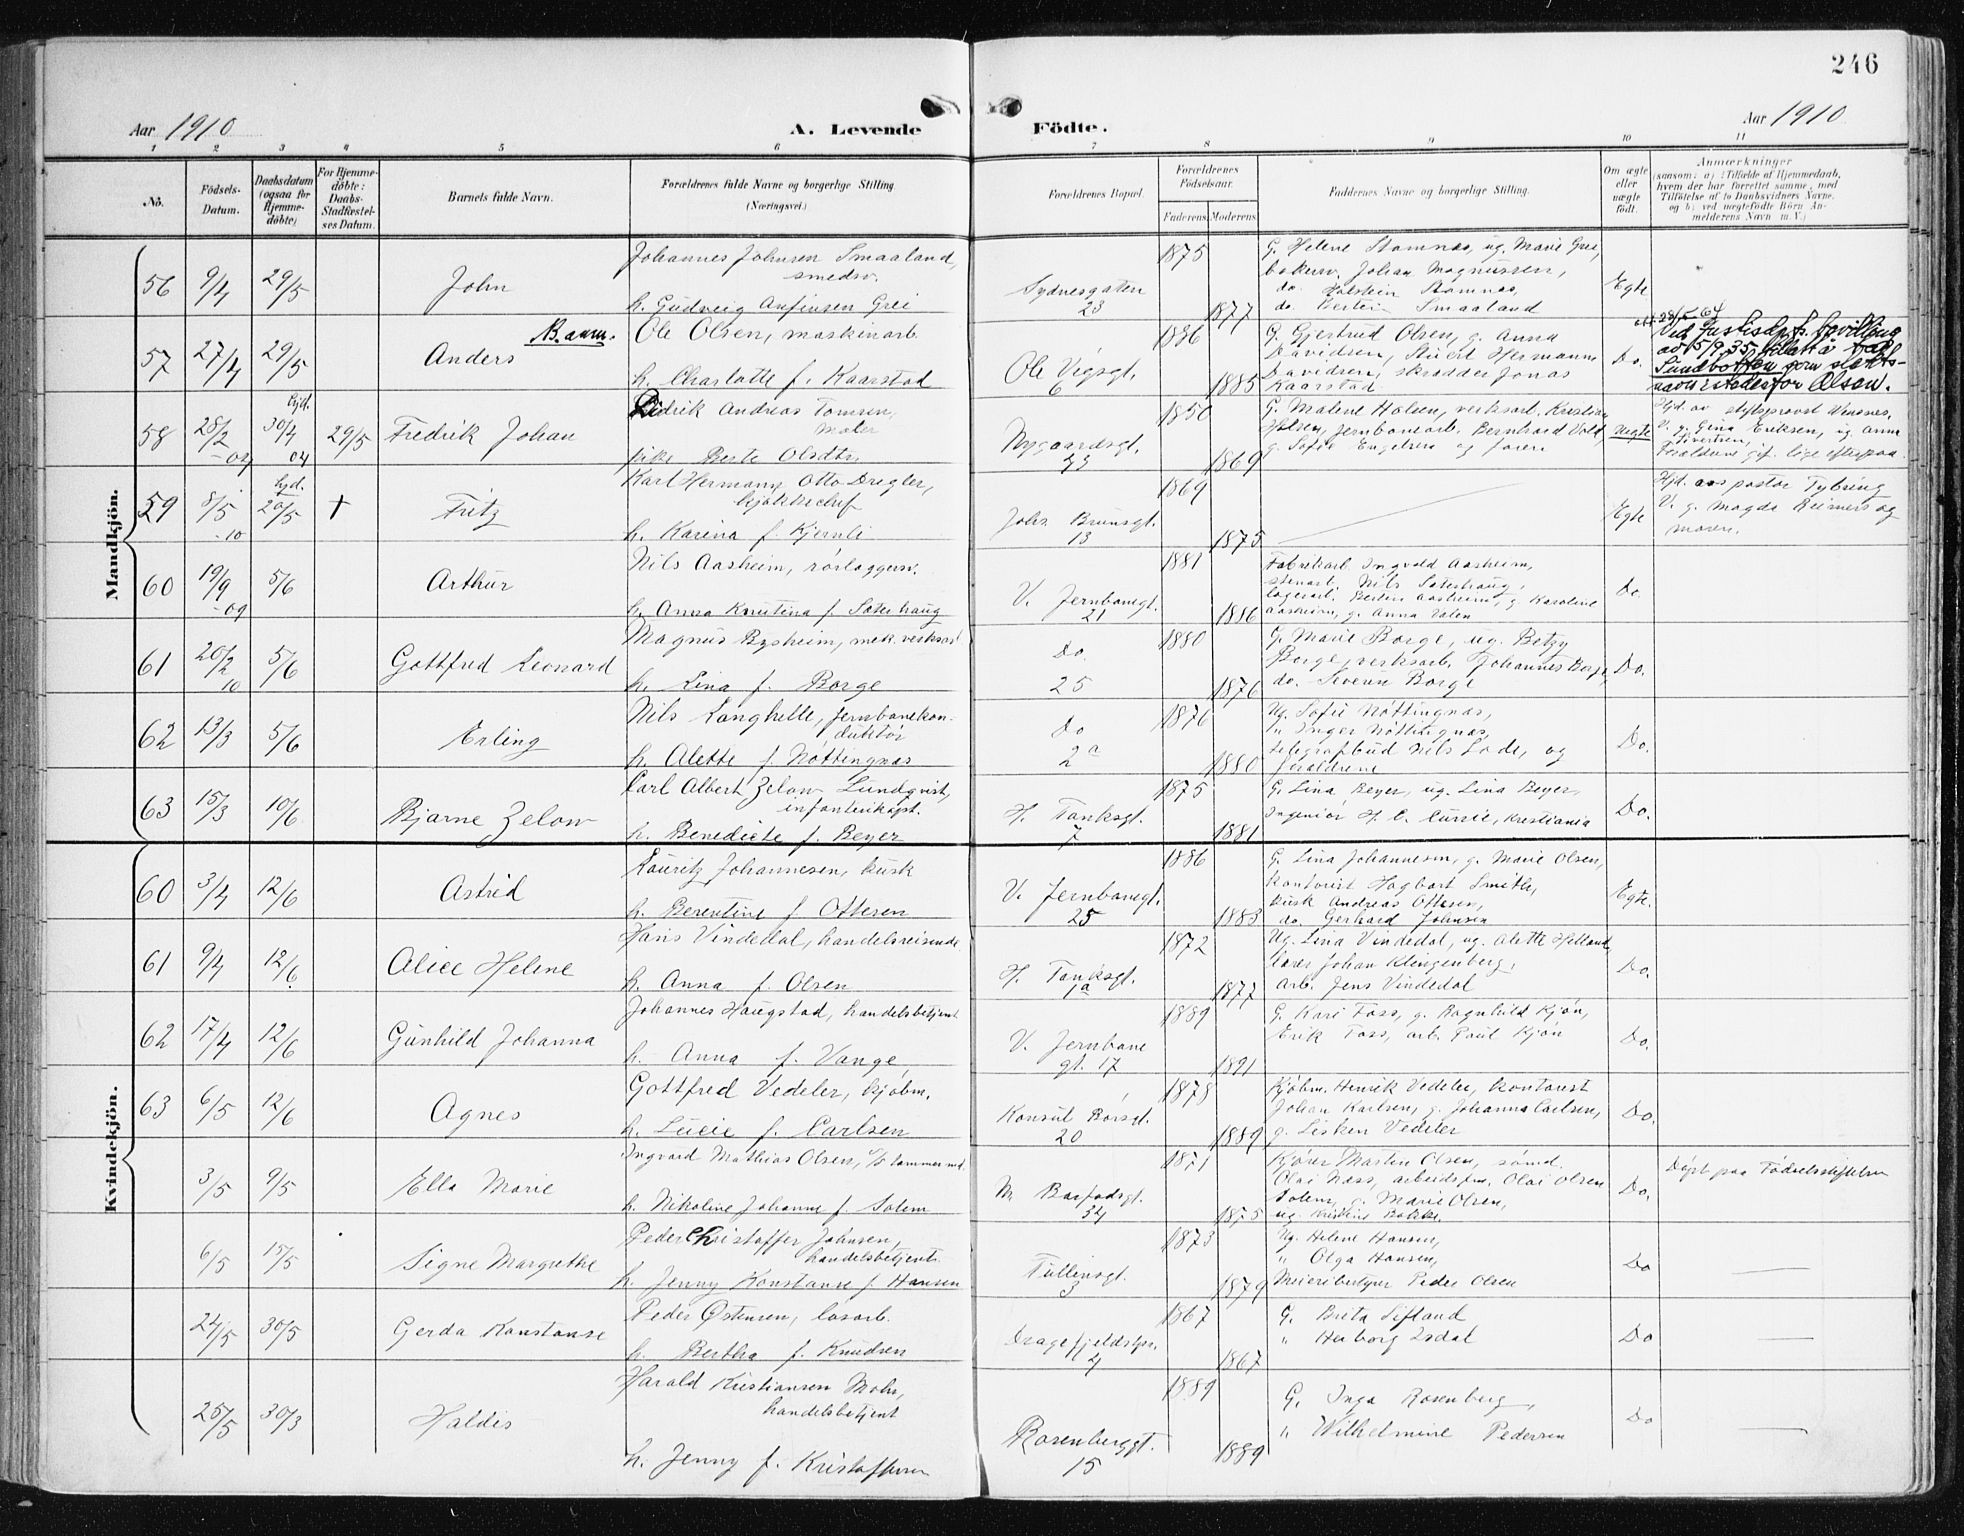 246
Aar 1910
A. Levende
Födte.
Aar 1910
1 2 3 4 5 6 7 8 9 10 11
No.
Födsels-Datum.
Daabsdatum (ogsaa for Hjemme-döbte)
For Hjemme-döbte: Daabs-Stadfæstel-ses Datum.
Barnets fulde Navn.
Forældrenes fulde Navne og borgerlige Stilling.
(Næringsvei.)
Forældrenes Bopæl.
Forældrenes Födselsaar.
Faderens Moderens
Faddernes Navne og borgerlige Stilling.
Om ægte eller uægte födt.
Anmærkninger
(saasom: a) i Tilfælde af Hjemmedaab,
hvem der har forrettet samme, med
Tilföielse af to Daabsvidners Navne,
og b) ved uægtefödte Börn An-
melderens Navn m. V.)
Mandkjön.
56 9/4 29/5 John
Johannes Johnsen Smaaland,
smedsv.
h. Gudveig Anfinsen Grei
Sydnesgaten
23
1875 1877
G. Helene Stamnes, ug. Marie Grei,
bakersv. Johan Magnussen,
do. Holstein Stamnes,
do. Bertin Smaaland
Egte
57 27/4 29/5 Anders
B. anm.
Ole Olsen, maskinarb.
h. Charlotte f. Kaarstad
Ole Vigsgt.
6
1886 1885
G. Gjertrud Olsen, g. Anna
Davidsen, Stuert Hermann
Davidsen, skrædder Jonas
Kaarstad
Do.
Ved Justisdep.s bevilling
av 15/9 35 tillatt å
Sundbotten som slekts-
navn istedenfor Olsen.
58 28/2 -04 hjd. 30/4 04 29/5 Fredrik Johan
Didrik Andreas Tomsen,
maler
pike Berte Olsdtr.
Nygaardsgt.
1850 1869
G. Malene Holsen, verksarb. Kristian
Holsen, jernbanearb. Bernhard Vold,
g. Sofie Engelsen og faren
uegte
V. g. Gina Eriksen, ug. Anna
Sivertsen,
59 8/5 -10 hjd. 20/5 + Fritz
Karl Hermann Otto Dregler,
kjøkkenchef
h. Karina f. Kjernli
John Brunsgt.
13
1869 1875
Egte
Hjd. av pastor Tybring
V. g. Magda Reimers og
moren.
60 19/9 -09 5/6 Arthur
Nils Aasheim, rørlæggersv.
h. Anna Knutina f. Soterhaug
V. Jernbanegt.
21
1881 1886
Fabrikarb. Ingvald Aasheim,
stenarb. Nils Soterhaug,
lagerarb. Bertin Aasheim, g. Karoline
Aasheim, g. Anna Valen
Do.
61 20/2 10 5/6 Gottfred Leonard
Magnus Bysheim, mek. verksarb.
h. Lina f. Borge
Do.
25
1880 1876
G. Marie Borge, ug. Betzy
Borge, verksarb. Johannes Borge,
do. Severin Borge
Do.
62 13/3 5/6 Erling
Nils Langhelle, jernbanekon-
duktør
h. Alette f. Nøttingnæs
Do
2a
1876 1880
Ug. Sofie Nøttingnæs,
" Inger Nøttingnæs,
telegrafbud Nils Lode, og
forældrene
Do.
63 15/3 10/6 Bjarne Zelow
Carl Albert Zelow Lundqvist,
infanterikapt.
h. Benedicte f. Beyer
H. Tanksgt.
7
1875 1881
G. Lina Beyer, ug. Lina Beyer,
Ingeniør H. C. Currie, Kristiania
Do.
Kvindekjön.
60 3/4 12/6 Astrid
Lauritz Johannesen, kusk
h. Berentine f. Ottesen
V. Jernbanegt.
25
1886 1883
G. Lina Johannesen, g. Marie Olsen,
kontorist Hagbart Smith,
kusk Andreas Ottesen,
do. Gerhard Johnsen
Egte.
61 9/4 12/6 Alice Helene
Hans Vindedal, handelsreisende
h. Anna f. Olsen
H. Tanksgt.
1a
1872 1877
Ug. Lina Vindedal, ug. Alette Helland,
lærer Johan Klingenberg,
arb. Jens Vindedal
Do.
62 17/4 12/6 Gunhild Johanna
Johannes Haugstad, handelsbetjent
h. Anna f. Vange
V. Jernbane
gt. 17
1889 1891
G. Kari Foss, g. Ragnhild Kjøn,
Erik Foss, arb. Paul Kjøn
Do.
63 6/5 12/6 Agnes
Gottfred Vedeler, kjøbm.
h. Lucie f. Carlsen
Konsul Børsgt.
20
1878 1889
Kjøbm. Henrik Vedeler, kontorist
Johan Karlsen, g. Johanna Carlsen,
g. Lisken Vedeler
Do.
3/5 9/5 Ella Marie
Ingvard Mathias Olsen, tømmermd.
h. Nikoline Johanne f. Solem
N. Barfodsgt.
34
1871 1875
Kjører Martin Olsen, sømd.
Olai Næss, arbeidsfm. Olai Olsen
Solem, g. Marie Olsen,
ug. Kristine Bakke.
Do.
Døpt paa Fødselsstiftelsen
6/5 15/5 Signe Margrethe
Peder Christoffer Johnsen,
handelsbetjent
h. Jenny Konstanse f. Hansen
Tullinsgt.
3
1873 1879
Ug. Helene Hansen,
" Olga Hansen,
Meieribestyrer Peder Olsen
Do
24/5 30/5 Gerda Konstanse
Peder Østensen, løsarb.
h. Bertha f. Knudsen
Dragefjeldstpr.
4
1867 1867
G. Brita Sifland
" Herborg Isdal
Do
25/5 30/3 Haldis
Harald Kristiansen Mohr,
handelsbetjent
h. Jenny f. Kristoffersen
Rosenberggt.
15
1889 1889
G. Inga Rosenberg,
" Wilhelmine Pedersen
Do